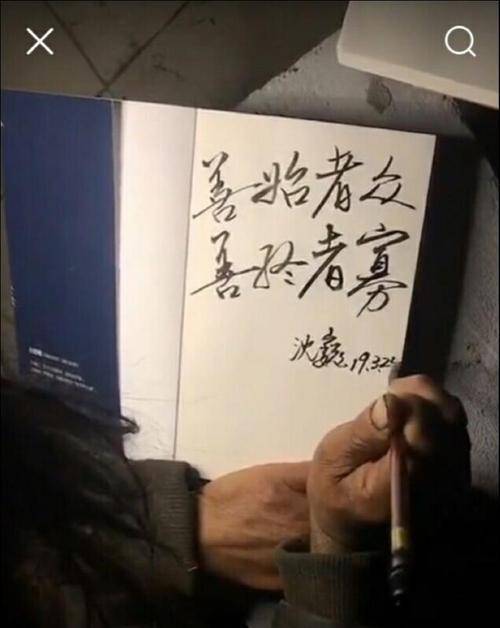 善始者众
善终者寡
沈巍 19.3.22